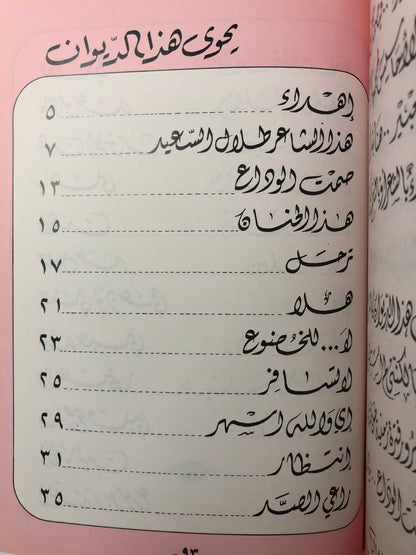 يحوى هذا الديوان
إهداء ٥
هذا الشاعر طلال السعيد ٧
صمت الوداع ١٣
هذا الحنان ١٥
ترحل ١٧
هلا ٢١
لا... للخضوع ٢٣
لا تسافر ٢٥
إي والله اسهر ٢٩
إنتظار ٣١
راعي الصد ٣٥
٩٣